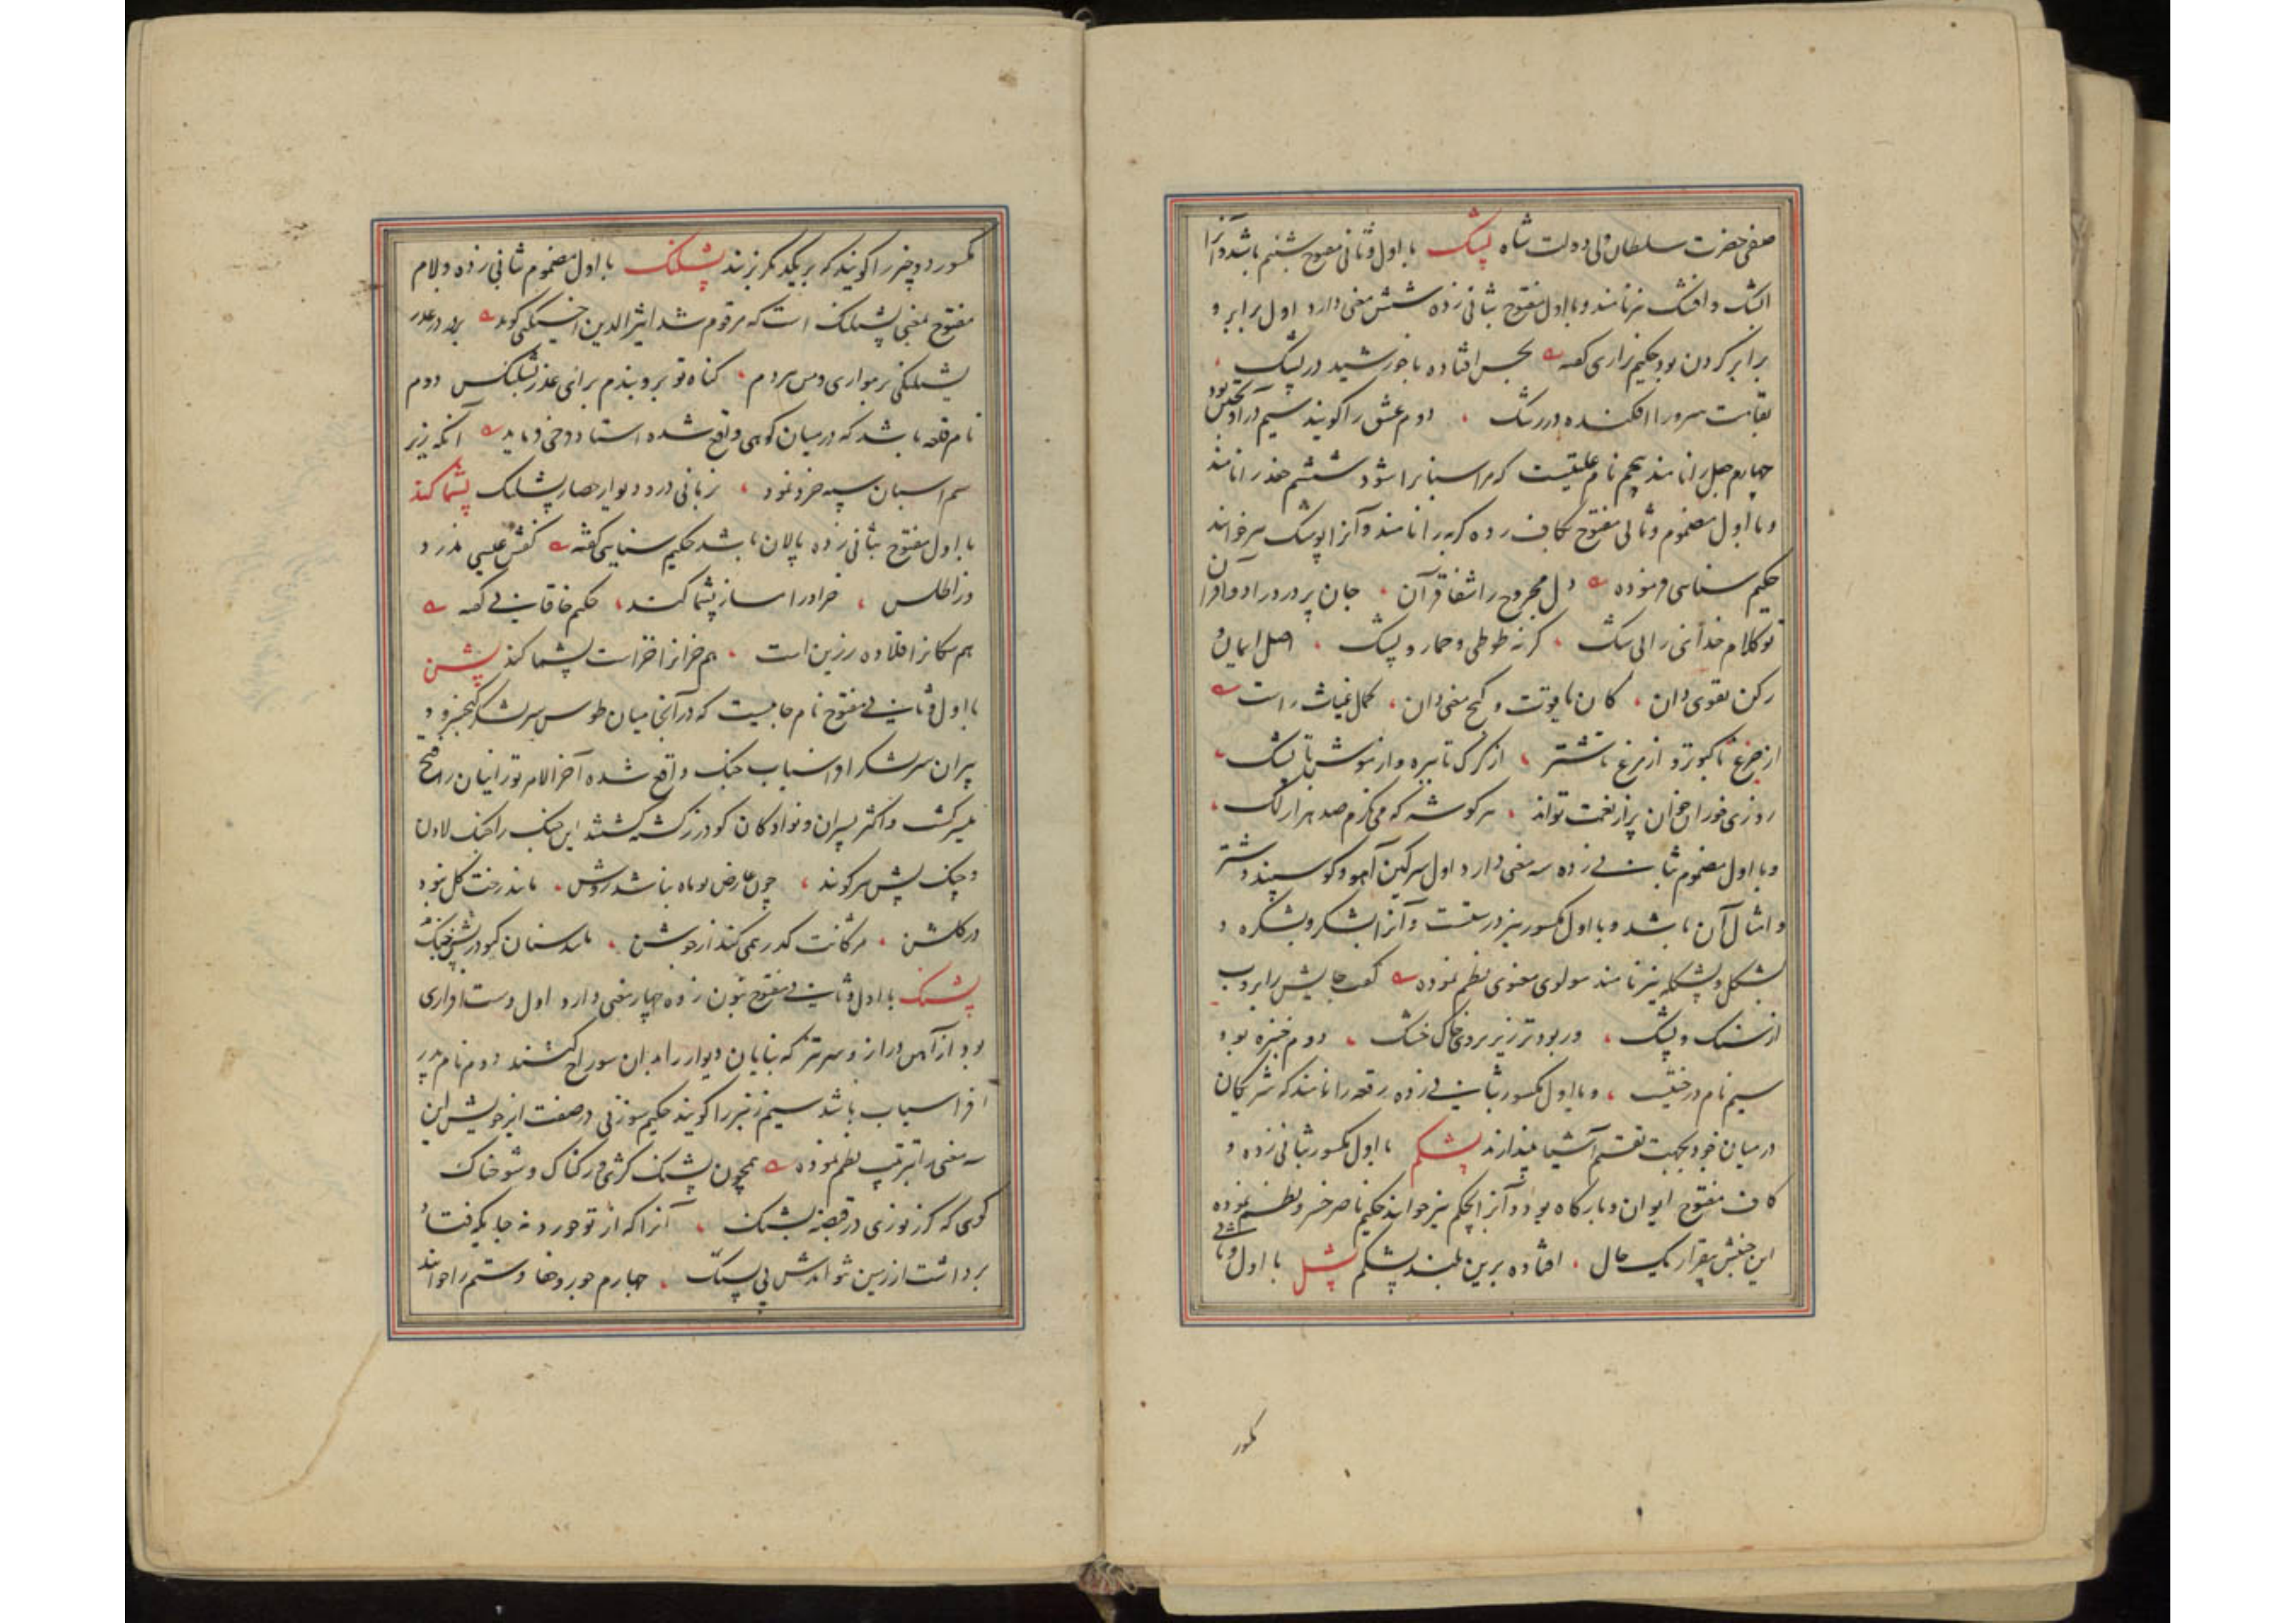 صفی حضرت سلطان ولی دولت شاه پشک با اول و ثانی مفتوح شبنم باشد و آنرا
اپشک و افشک نیز نامند و با اول مفتوح بثانی زده شش معنی دارد اول برابر و
برابر کردن بود حکیم نزاری گفته بافتاده با خورشید در پشک
بقامت سرو را افکنده در رشک دوم عشق را گویند سیم در آویختن بود
چهارم جعل را نامند پنجم نام علتیست که مر اسبانرا شود ششم جغد را نامند
و با اول مضموم و ثانی مفتوح بکاف زده گربه را نامند و آنرا پوشک نیز خوانند
حکیم سنائی فرموده دل مجروح را شفا قرآن جان پر درد را دوا قرآن
تو کلام خدای را بی شک گر نه طوطی و حمار و پشک اصل ایمان و
رکن تقوی دان کان یاقوت و گنج معنی دان کمال غیاث راست
از چرغ تا کبوتر و از مرغ تا شتر از گرگ تا بره و از موش تا پشک
روزی خوران خوان پر از نعمت تواند هر گوشه که می‌نگرم صد هزار لک
و با اول مضموم بثانی زده سه معنی دارد اول سرگین آهو و گوسپند و شتر
و امثال آن باشد و با اول مکسور نیز درستست و آنرا پشکر و پشکره و
پشکل و پشکله نیز نامند مولوی معنوی نظم نموده گفت جایش را بروب
از سنگ و پشک ور بود تر ریز بر وی خاک خشک دوم خنبره بود
سیم نام درختیست و با اول مکسور بثانی زده رقعه را نامند که شریکان
در میان خود بجهت تقسیم اشیا بیندازند پشکم با اول مکسور بثانی زده و
کاف مفتوح ایوان و بارگاه بود و آنرا بچکم نیز خوانند حکیم ناصر خسرو نظم نموده
این جنبش بیقرار یک حال افتاده برین بلند پشکم پشل با اول و ثانی
مکسور
مکسور دو چیز را گویند که بر یکدیگر بزنند پشلنک با اول مضموم ثانی زده و لام
مفتوح بمعنی پشلنک است که مرقوم شد اثیرالدین اخسیکتی گوید
پشلنکی دوم
نام قلعه باشد که در میان کوهی واقع شده استاد فرخی فرماید آنکه زیر
سم اسبان سپه خرد نمود بزمانی در و دیوار حصار پشلنک پشماکند
با اول مفتوح بثانی زده پالان باشد حکیم سنایی گفته کفش عیسی مدوز
از اطلس خر او را مساز پشماکند حکیم خاقانی گفته
هم سگانرا قلاده زرین است هم خرانرا خز است پشماکند پشن
با اول و ثانی مفتوح نام جاییست که در آنجا میان طوس سر لشکر کیخسرو و
پیران سر لشکر افراسیاب جنگ واقع شده آخر الامر تورانیان را فتح
میسر گشت و اکثر پسران و نوادگان گودرز کشته شدند این جنگ را جنگ لادن
و جنگ پشن نیز گویند چون عارض تو ماه نباشد روشن مانند رخت گل نبود
در گلشن مژگانت گذر همی کند از جوشن مانند سنان گیو در جنگ پشن
پشنک با اول و ثانی مفتوح بنون زده چهار معنی دارد اول دست افزاری
بود از آهن دراز و سرتیز که بنایان دیوار را بدان سوراخ کنند دوم نام پدر
افراسیاب باشد سیم زنبر را گویند حکیم سوزنی در صفت ایر خویش این
سه معنی را بترتیب نظم نموده همچون پشنک
گوئی که گرز نوذری در قبضه پشنک آنرا که
برداشت از زمین نتواندش بی پشنک چهارم جور و جفا و ستم را خوانند